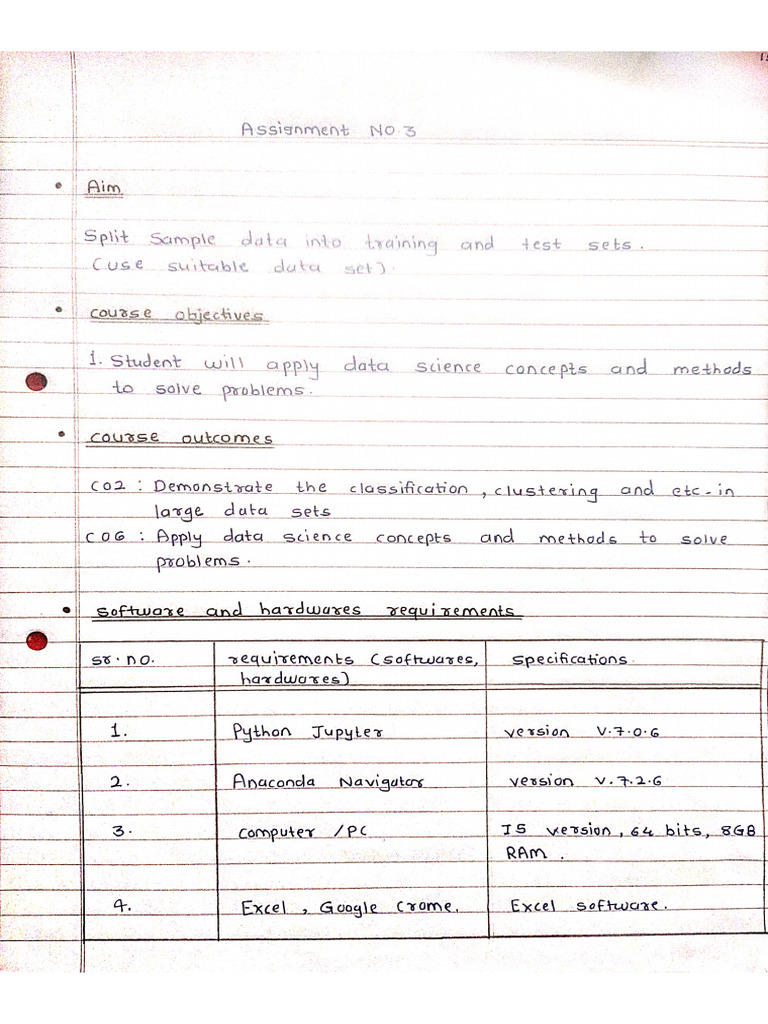 Assignment NO.3
• Aim
Split Sample data into training and test sets.
(use suitable data set).
• course objectives
1. Student will apply data science concepts and methods
to solve problems.
• course outcomes
CO2 : Demonstrate the classification, clustering and etc. in
large data sets
CO6 : Apply data science concepts and methods to solve
problems.
• software and hardwares requirements
sr.no. requirements (softwares, specifications.
hardwares)
1. Python Jupyter version v.7.0.6
2. Anaconda Navigator version v.7.2.6
3. computer /PC I5 version, 64 bits, 8GB
RAM.
4. Excel, Google Crome. Excel software.